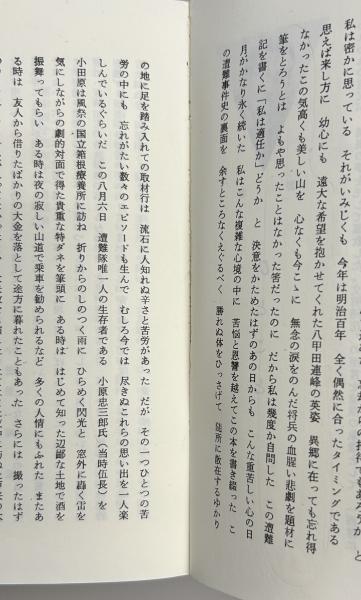 私は密かに思っている それがいみじくも 今年は明治百年 全く偶然に合ったタイミングである
思えば来し方に 幼心にも 遠大な希望を抱かせてくれた八甲田連峰の英姿 異郷に在っても忘れ得
なかったこの気高くも美しい山を 心なくも今こゝに 無念の涙をのんだ将兵の血腥い悲劇を題材に
筆をとろうとは よもや思ったことはなかった筈だったのに だから私は幾度か自問した この遭難
記を書くに「私は適任か」どうか と 決意をかためたはずのあの日からも こんな重苦しい心の日
月がかなり永く続いた 私はこんな複雑な心境の中に 苦悩と恩讐を越えてこの本を書き綴った こ
の遭難事件史の裏面を 余すところなくえぐるべく 勝れぬ体をひっさげて 随所に散在するゆかり
の地に足を踏み入れての取材行は 流石に人知れぬ辛さと苦労があった だが その一つひとつの苦
労の中にも 忘れがたい数々のエピソードも生んで むしろ今では 尽きぬこれらの思い出を一人楽
しんでいるぐらいだ この八月六日 遭難隊唯一人の生存者である 小原忠三郎氏(当時伍長)を
小田原は風祭の国立箱根療養所に訪ね 折りからのしのつく雨に ひらめく閃光と 窓外に轟く雷を
気にしながらの劇的対面で得た貴重な特ダネを筆頭に ある時は はじめて知った辺鄙な土地で酒を
振舞ってもらい ある時は夜の寂しい山道で乗車を勧められるなど 多くの人情にもふれた またあ
る時は 友人から借りたばかりの大金を落として途方に暮れたこともあった さらには 撮ったはず